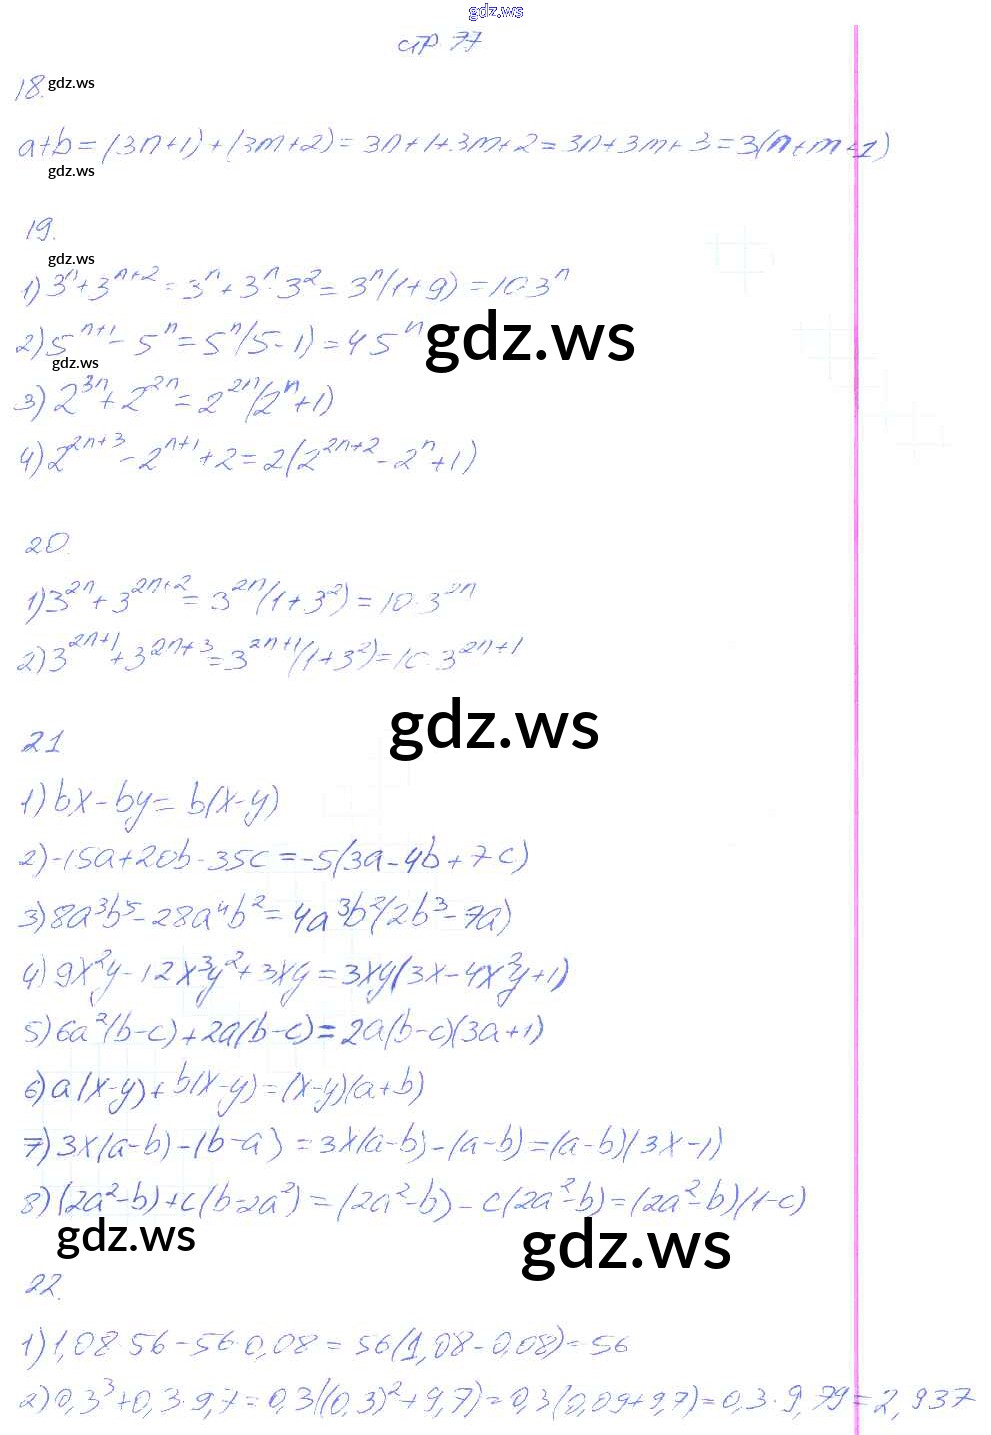 gdz.ws
стр 77
18. gdz.ws
a+b = (3n+1)+(3m+2) = 3n+1+3m+2 = 3n+3m+3 = 3(n+m+1)
gdz.ws
19.
gdz.ws
1) 3^n + 3^{n+2} = 3^n + 3^n · 3^2 = 3^n(1+9) = 10·3^n
2) 5^{n+1} - 5^n = 5^n(5-1) = 4 5^n gdz.ws
gdz.ws
3) 2^{3n} + 2^{2n} = 2^{2n}(2^n+1)
4) 2^{2n+3} - 2^{n+1} + 2 = 2(2^{2n+2} - 2^n + 1)
20.
1) 3^{2n} + 3^{2n+2} = 3^{2n}(1+3^2) = 10·3^{2n}
2) 3^{2n+1} + 3^{2n+3} = 3^{2n+1}(1+3^2) = 10·3^{2n+1}
gdz.ws
21
1) bx - by = b(x-y)
2) -15a+20b-35c = -5(3a-4b+7c)
3) 8a^3b^5 - 28a^4b^2 = 4a^3b^2(2b^3-7a)
4) 9x^2y - 12x^3y^2 + 3xy = 3xy(3x-4x^2y+1)
5) 6a^2(b-c)+2a(b-c) = 2a(b-c)(3a+1)
6) a(x-y)+b(x-y) = (x-y)(a+b)
7) 3x(a-b)-(b-a) = 3x(a-b)-(a-b) = (a-b)(3x-1)
8) (2a^2-b)+c(b-2a^2) = (2a^2-b)-c(2a^2-b) = (2a^2-b)(1-c)
gdz.ws gdz.ws
22.
1) 1,08·56-56·0,08 = 56(1,08-0,08) = 56
2) 0,3^3+0,3·9,7 = 0,3((0,3)^2+9,7) = 0,3(0,09+9,7) = 0,3·9,79 = 2,937